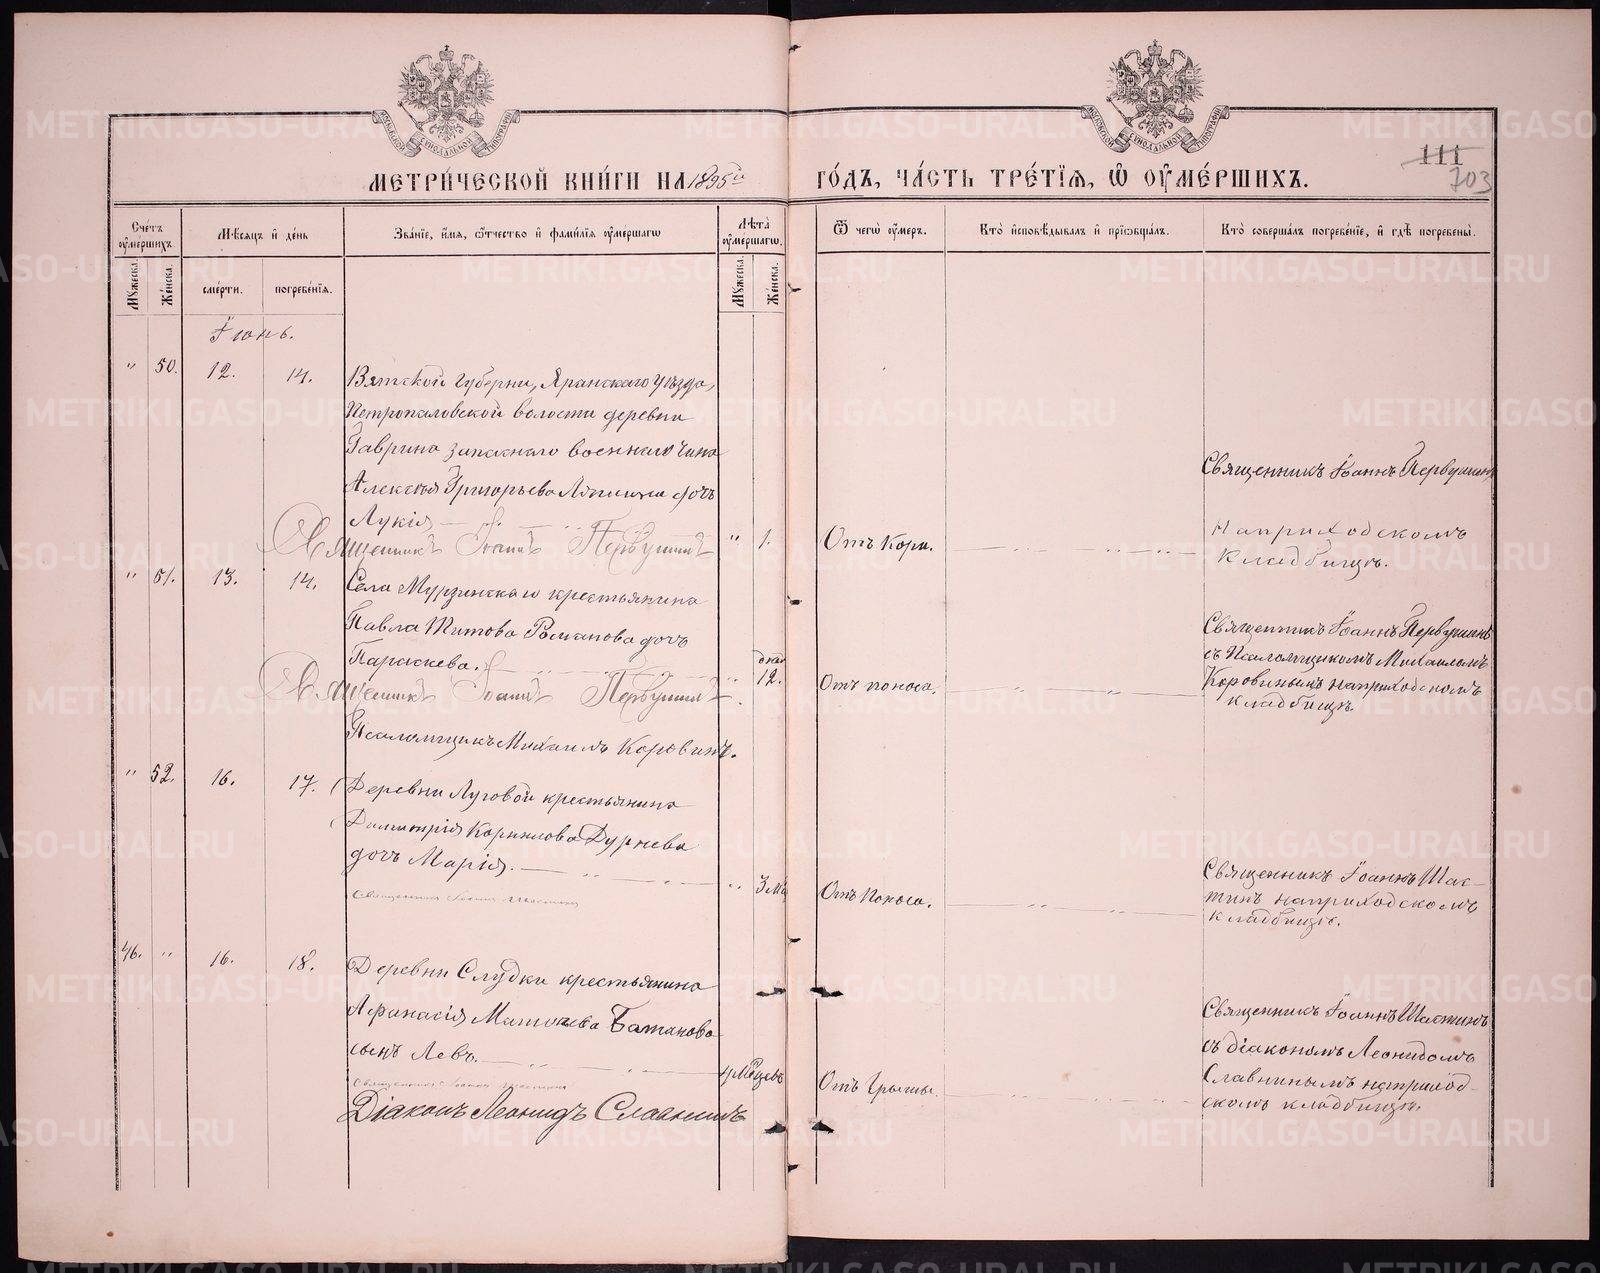 МЕТРИ́ЧЕСКОЙ КНИ́ГИ НА 1895й ГО́ДЪ, ЧА́СТЬ ТРЕ́ТІѦ, Ѡ ОУМЕ́РШИХЪ.
111
703
Сче́тъ оуме́ршихъ.
Мꙋ́жеска.
Же́нска.
Мѣ́сѧцъ и де́нь
сме́рти.
погребе́нїѧ.
Зва́нїе, и́мѧ, ѻ҆́тчество и фами́лїѧ оуме́ршагѡ
Лѣ́та оуме́ршагѡ.
Мꙋ́жеска.
Же́нска.
Ѿ чегѡ̀ оу́меръ.
Кто̀ и҆сповѣ́дывалъ и прїѡбща́лъ.
Кто̀ соверша́лъ погребе́нїе, и гдѣ̀ погребены̀.
Іюнь.
" 50. 12. 14.
Вятской губерни, Яранскаго уѣзда,
Петропаловской волости деревни
Гаврина запаснаго военнаго чина
Алексѣя Григорьева дочь
Лукія
Священникъ Іоаннъ Первушинъ
" 1.
Отъ Кори.
Священникъ Іоаннъ Первушинъ
На приходскомъ
кладбищѣ.
" 51. 13. 14.
Села Мурзинскаго крестьянина
Павла Титова Романова дочь
Параскева.
Священникъ Іоаннъ Первушинъ
Псаломщикъ Михаилъ Коровинъ.
дней
12.
Отъ поноса.
Священникъ Іоаннъ Первушинъ
съ Псаломщикомъ Михаиломъ
Коровинымъ на приходскомъ
кладбищѣ.
" 52. 16. 17.
Деревни Луговой крестьянина
Димитрія Корнилова Дурнева
дочь Марія.
Священникъ Іоаннъ Шастинъ
" 3 мѣ
Отъ Поноса.
Священникъ Іоаннъ Шас-
тинъ на приходскомъ
кладбищѣ.
46. " 16. 18.
Деревни Слудки крестьянина
Афанасія Матвѣева Батанова
сынъ Левъ.
Священникъ Іоаннъ Шастинъ
Діаконъ Леонидъ Славнинъ
4 Мѣсцевъ
Отъ Грыжы.
Священникъ Іоаннъ Шастинъ
съ діакономъ Леонидомъ
Славнинымъ на приход-
скомъ кладбищѣ.
METRIKI.GASO-URAL.RU